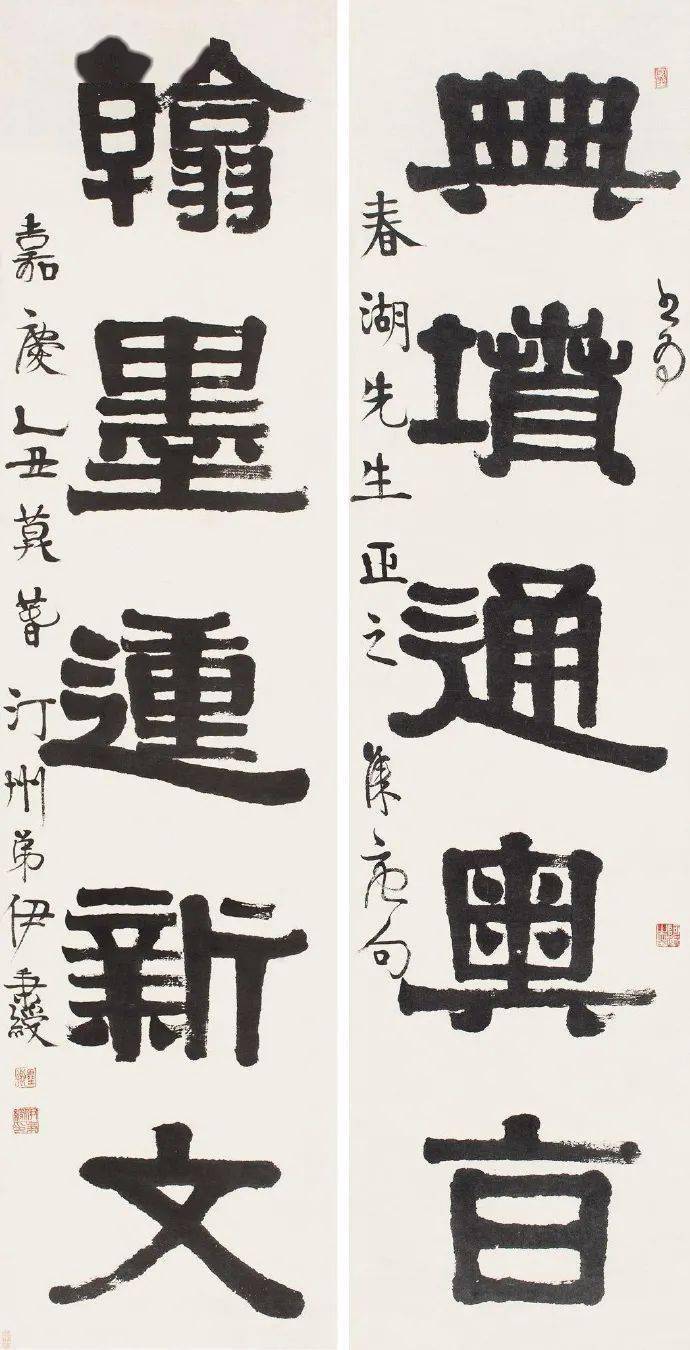 書為
典墳通奧旨
春湖先生正之 集唐句
翰墨運新文
嘉慶乙丑莫萅 汀州弟伊秉綬